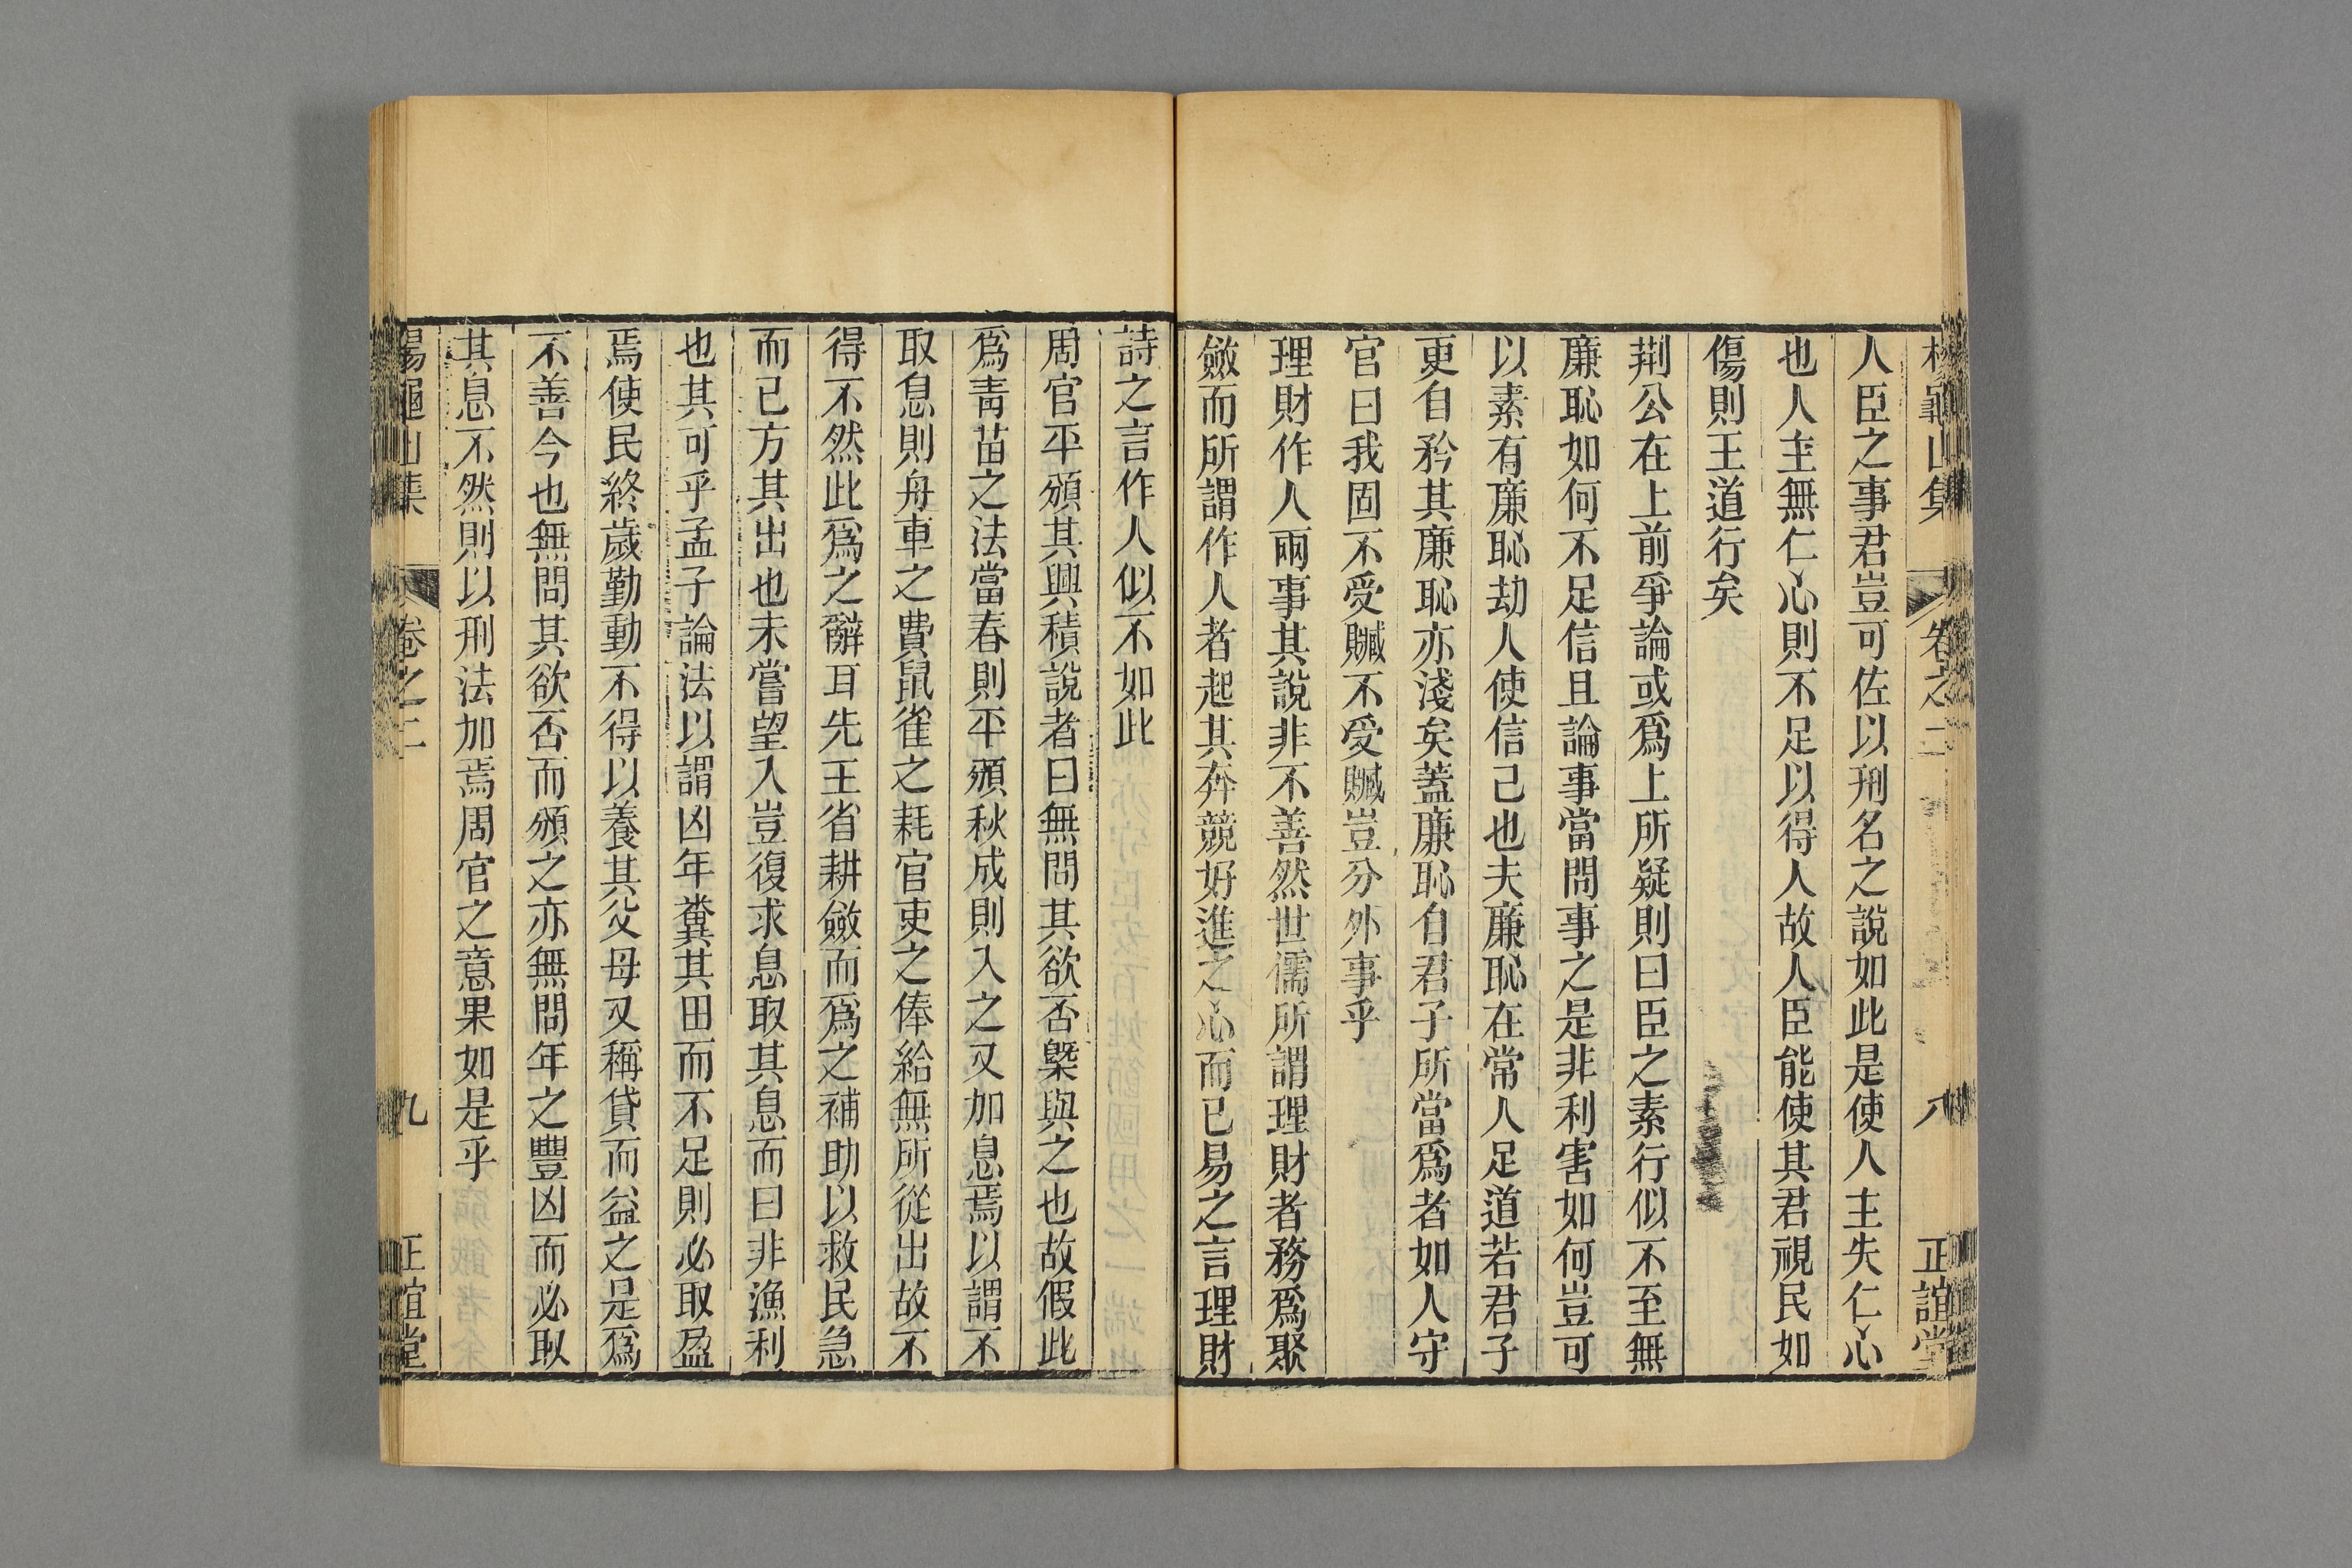 楊龜山集 卷之二 八 正誼堂
人臣之事君豈可佐以刑名之說如此是使人主失仁心
也人主無仁心則不足以得人故人臣能使其君視民如
傷則王道行矣
荆公在上前爭論或爲上所疑則曰臣之素行似不至無
廉恥如何不足信且論事當問事之是非利害如何豈可
以素有廉恥劫人使信己也夫廉恥在常人足道若君子
更自矜其廉恥亦淺矣蓋廉恥自君子所當爲者如人守
官曰我固不受贓不受贓豈分外事乎
理財作人兩事其說非不善然世儒所謂理財者務爲聚
斂而所謂作人者起其奔競好進之心而已易之言理財
詩之言作人似不如此
周官平頒其興積說者曰無問其欲否槩與之也故假此
爲靑苗之法當春則平頒秋成則入之又加息焉以謂不
取息則舟車之費鼠雀之耗官吏之俸給無所從出故不
得不然此爲之辭耳先王省耕斂而爲之補助以救民急
而已方其出也未嘗望入豈復求息取其息而曰非漁利
也其可乎孟子論法以謂凶年糞其田而不足則必取盈
焉使民終歲勤動不得以養其父母又稱貸而益之是爲
不善今也無問其欲否而頒之亦無問年之豐凶而必取
其息不然則以刑法加焉周官之意果如是乎
楊龜山集 卷之二 九 正誼堂